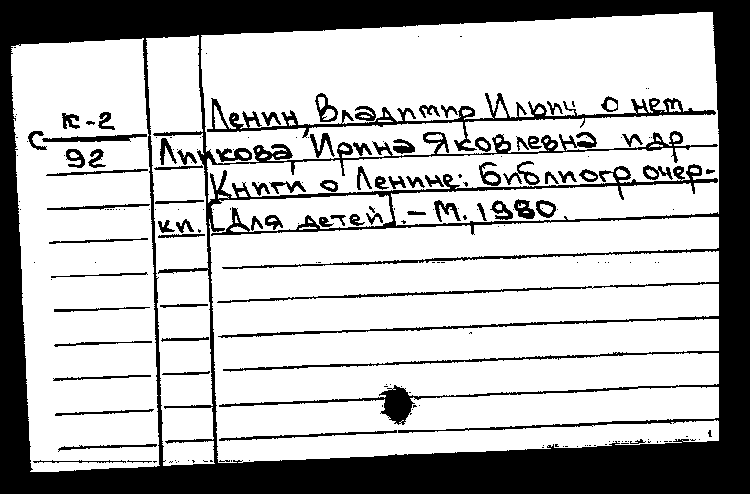 Ленин, Владимир Ильич, о нем.
К-2
С
92
Линкова, Ирина Яковлевна и др.
Книги о Ленине: библиогр. очер-
ки. [Для детей]. – М., 1980.